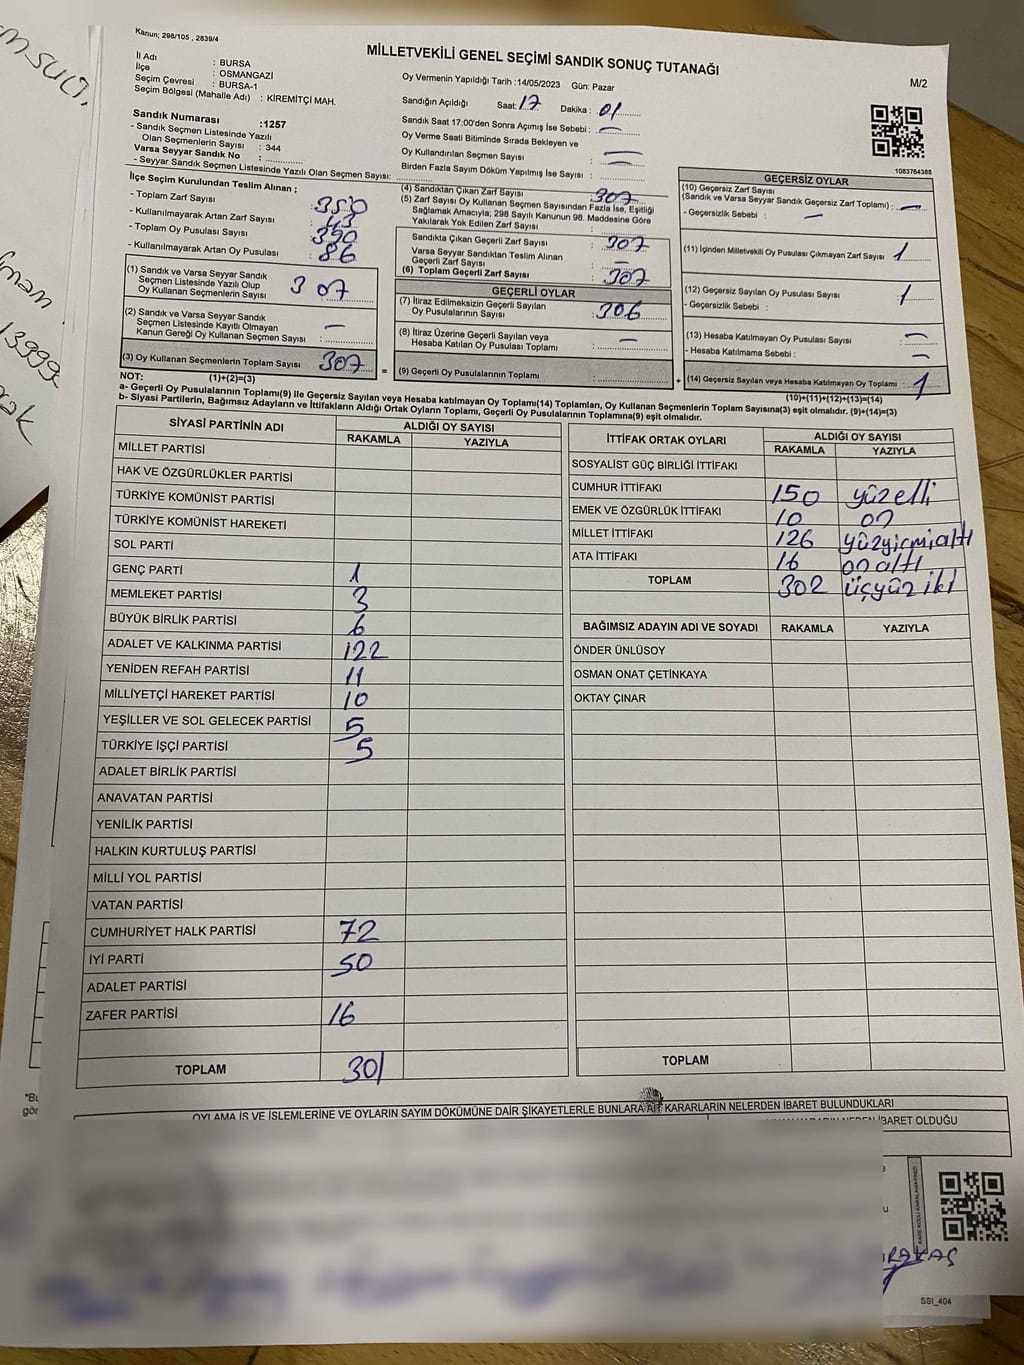 Kanun; 298/105 , 2839/4
MİLLETVEKİLİ GENEL SEÇİMİ SANDIK SONUÇ TUTANAĞI
M/2
İl Adı : BURSA
İlçe : OSMANGAZİ
Seçim Çevresi : BURSA-1
Seçim Bölgesi (Mahalle Adı) : KİREMİTÇİ MAH.
Oy Vermenin Yapıldığı Tarih :14/05/2023 Gün: Pazar
Sandığın Açıldığı Saat: 17 Dakika : 01
Sandık Saat 17:00'den Sonra Açımış İse Sebebi : —
Oy Verme Saati Bitiminde Sırada Bekleyen ve
Oy Kullandırılan Seçmen Sayısı : —
Birden Fazla Sayım Döküm Yapılmış İse Sayısı : —
1083764388
Sandık Numarası :1257
- Sandık Seçmen Listesinde Yazılı
Olan Seçmenlerin Sayısı : 344
Varsa Seyyar Sandık No :
- Seyyar Sandık Seçmen Listesinde Yazılı Olan Seçmen Sayısı:
İlçe Seçim Kurulundan Teslim Alınan ;
- Toplam Zarf Sayısı : 350
- Kullanılmayarak Artan Zarf Sayısı : 43
- Toplam Oy Pusulası Sayısı : 390
- Kullanılmayarak Artan Oy Pusulası : 86
(1) Sandık ve Varsa Seyyar Sandık
Seçmen Listesinde Yazılı Olup
Oy Kullanan Seçmenlerin Sayısı : 307
(2) Sandık ve Varsa Seyyar Sandık
Seçmen Listesinde Kayıtlı Olmayan
Kanun Gereği Oy Kullanan Seçmen Sayısı : —
(3) Oy Kullanan Seçmenlerin Toplam Sayısı 307
(4) Sandıktan Çıkan Zarf Sayısı 307
(5) Zarf Sayısı Oy Kullanan Seçmen Sayısından Fazla İse, Eşitliği
Sağlamak Amacıyla; 298 Sayılı Kanunun 98. Maddesine Göre
Yakılarak Yok Edilen Zarf Sayısı :
Sandıkta Çıkan Geçerli Zarf Sayısı : 307
Varsa Seyyar Sandıktan Teslim Alınan
Geçerli Zarf Sayısı : —
(6) Toplam Geçerli Zarf Sayısı : 307
GEÇERLİ OYLAR
(7) İtiraz Edilmeksizin Geçerli Sayılan
Oy Pusulalarının Sayısı : 306
(8) İtiraz Üzerine Geçerli Sayılan veya
Hesaba Katılan Oy Pusulası Toplamı : —
= (9) Geçerli Oy Pusulalarının Toplamı : +
GEÇERSİZ OYLAR
(10) Geçersiz Zarf Sayısı
(Sandık ve Varsa Seyyar Sandık Geçersiz Zarf Toplamı) : —
- Geçersizlik Sebebi : —
(11) İçinden Milletvekili Oy Pusulası Çıkmayan Zarf Sayısı : 1
(12) Geçersiz Sayılan Oy Pusulası Sayısı : 1
- Geçersizlik Sebebi :
(13) Hesaba Katılmayan Oy Pusulası Sayısı : —
- Hesaba Katılmama Sebebi : —
(14) Geçersiz Sayılan veya Hesaba Katılmayan Oy Toplamı : 1
NOT: (1)+(2)=(3)
(10)+(11)+(12)+(13)=(14)
a- Geçerli Oy Pusulalarının Toplamı(9) ile Geçersiz Sayılan veya Hesaba Katılmayan Oy Toplamı(14) Toplamları, Oy Kullanan Seçmenlerin Toplam Sayısına(3) eşit olmalıdır. (9)+(14)=(3)
b- Siyasi Partilerin, Bağımsız Adayların ve İttifakların Aldığı Ortak Oyların Toplamı, Geçerli Oy Pusulalarının Toplamına(9) eşit olmalıdır.
SİYASİ PARTİNİN ADI ALDIĞI OY SAYISI
RAKAMLA YAZIYLA
MİLLET PARTİSİ
HAK VE ÖZGÜRLÜKLER PARTİSİ
TÜRKİYE KOMÜNİST PARTİSİ
TÜRKİYE KOMÜNİST HAREKETİ
SOL PARTİ
GENÇ PARTİ 1
MEMLEKET PARTİSİ 3
BÜYÜK BİRLİK PARTİSİ 6
ADALET VE KALKINMA PARTİSİ 122
YENİDEN REFAH PARTİSİ 11
MİLLİYETÇİ HAREKET PARTİSİ 10
YEŞİLLER VE SOL GELECEK PARTİSİ 5
TÜRKİYE İŞÇİ PARTİSİ 5
ADALET BİRLİK PARTİSİ
ANAVATAN PARTİSİ
YENİLİK PARTİSİ
HALKIN KURTULUŞ PARTİSİ
MİLLİ YOL PARTİSİ
VATAN PARTİSİ
CUMHURİYET HALK PARTİSİ 72
İYİ PARTİ 50
ADALET PARTİSİ
ZAFER PARTİSİ 16
TOPLAM 301
İTTİFAK ORTAK OYLARI ALDIĞI OY SAYISI
RAKAMLA YAZIYLA
SOSYALİST GÜÇ BİRLİĞİ İTTİFAKI
CUMHUR İTTİFAKI 150 yüzelli
EMEK VE ÖZGÜRLÜK İTTİFAKI 10 on
MİLLET İTTİFAKI 126 yüzyirmialtı
ATA İTTİFAKI 16 onaltı
TOPLAM 302 üçyüz iki
BAĞIMSIZ ADAYIN ADI VE SOYADI RAKAMLA YAZIYLA
ÖNDER ÜNLÜSOY
OSMAN ONAT ÇETİNKAYA
OKTAY ÇINAR
TOPLAM
OYLAMA İŞ VE İŞLEMLERİNE VE OYLARIN SAYIM DÖKÜMÜNE DAİR ŞİKAYETLERLE BUNLARA AİT KARARLARIN NELERDEN İBARET BULUNDUKLARI
İBARET OLDUĞU
SSI_404